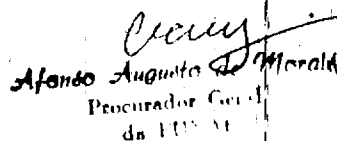 Afonso Augusto de Morais
Procurador Geral
da FUNAI